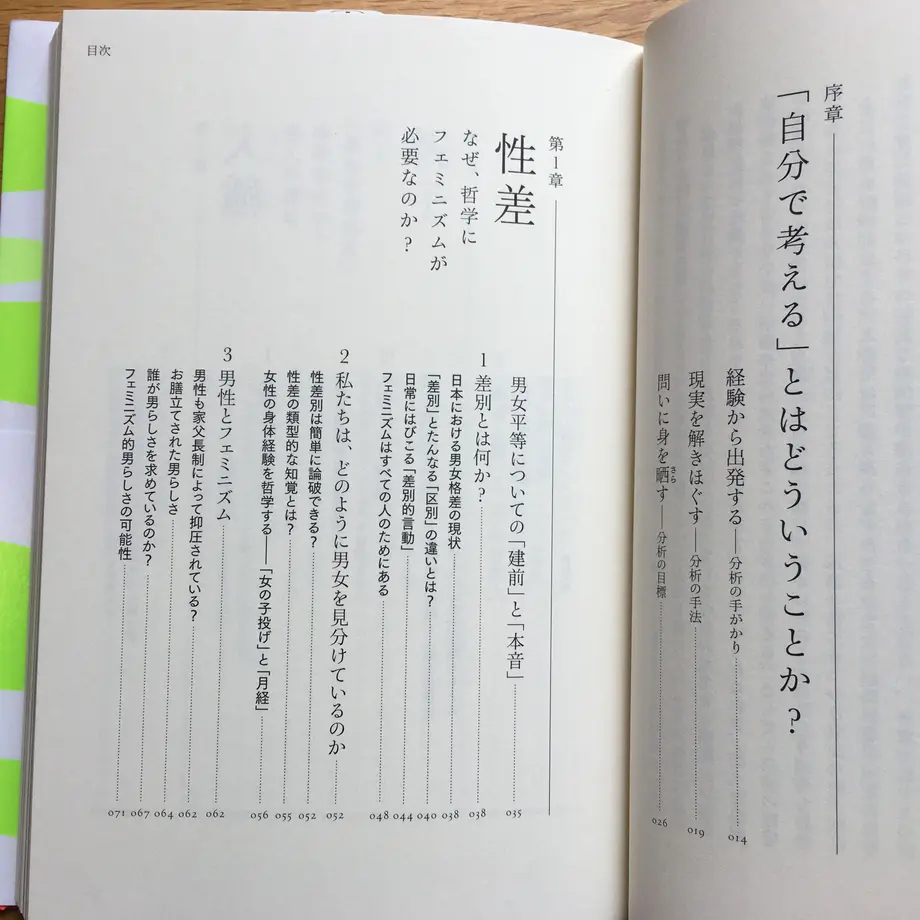 序章
「自分で考える」とはどういうことか?
経験から出発する——分析の手がかり 014
現実を解きほぐす——分析の手法 019
問いに身を晒(さら)す——分析の目標 026
目次
第1章
性差
なぜ、哲学に
フェミニズムが
必要なのか?
男女平等についての「建前」と「本音」 035
1 差別とは何か? 038
日本における男女格差の現状 038
「差別」とたんなる「区別」の違いとは? 040
日常にはびこる「差別的言動」 044
フェミニズムはすべての人のためにある 048
2 私たちは、どのように男女を見分けているのか 052
性差別は簡単に論破できる? 052
性差の類型的な知覚とは? 055
女性の身体経験を哲学する——「女の子投げ」と「月経」 056
3 男性とフェミニズム 062
男性も家父長制によって抑圧されている? 062
お膳立てされた男らしさ 064
誰が男らしさを求めているのか? 067
フェミニズム的男らしさの可能性 071